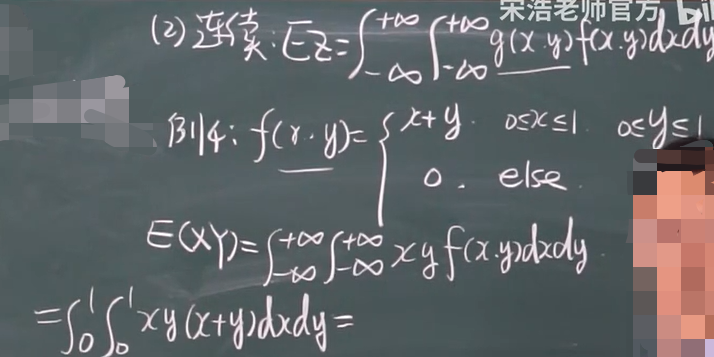 宋浩老师官方
(2) 连续: EZ=∫_{-∞}^{+∞}∫_{-∞}^{+∞} g(x.y)f(x.y)dxdy
例4: f(x.y)={ x+y. 0≤x≤1. 0≤y≤1
0. else.
E(XY)=∫_{-∞}^{+∞}∫_{-∞}^{+∞} xyf(x.y)dxdy.
=∫_0^1∫_0^1 xy(x+y)dxdy=